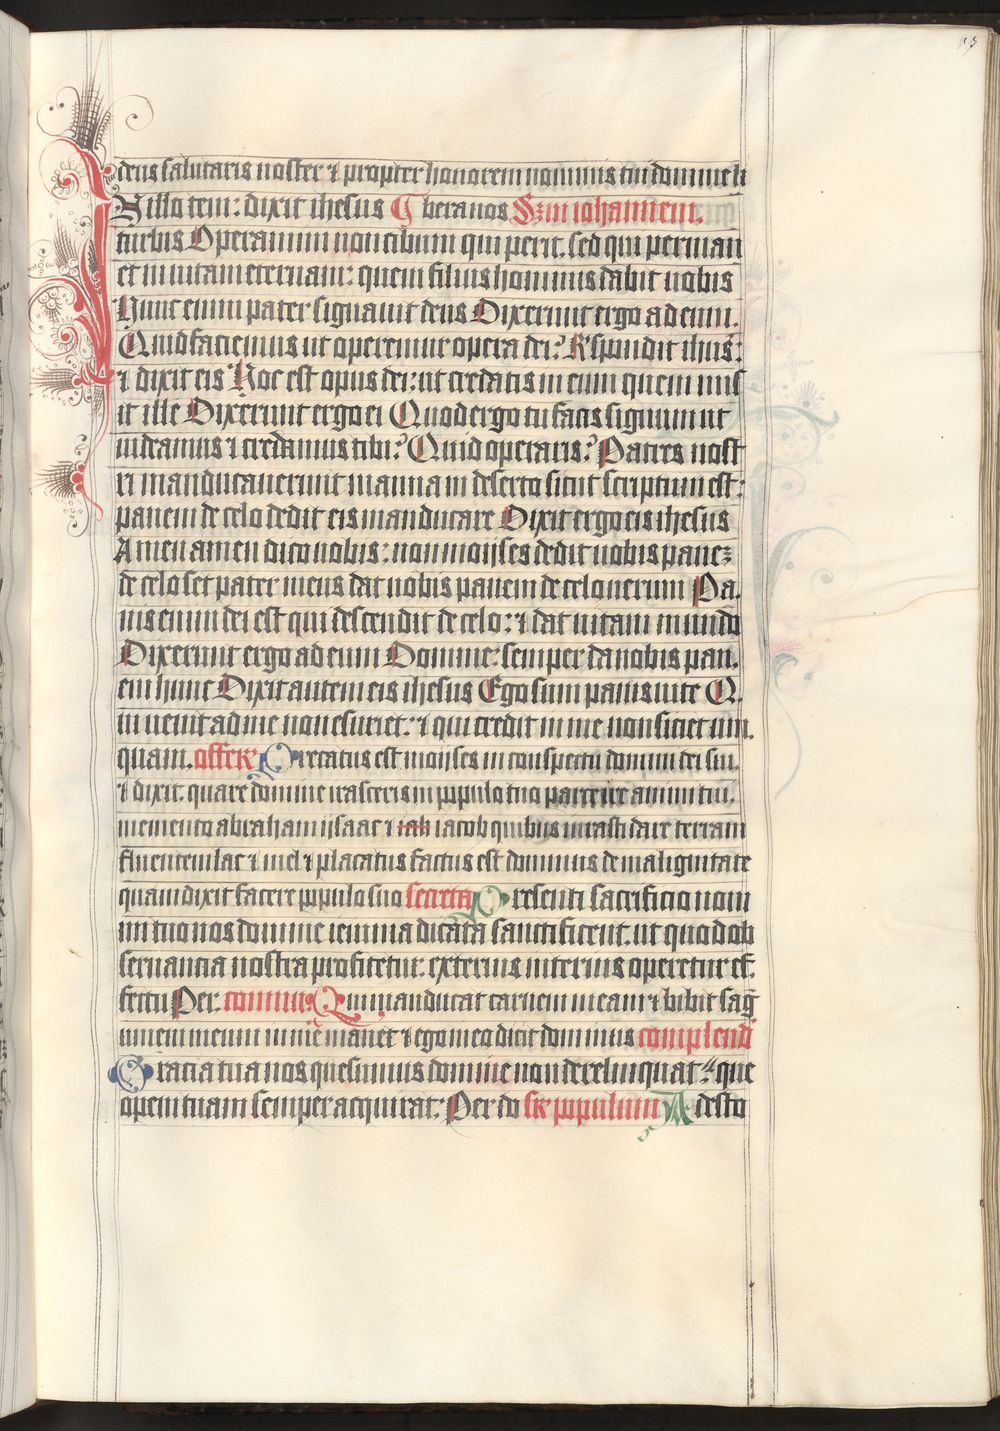 deus salutaris noster ⁊ propter honorem nominis tui domine li
In illo tem: dixit ihesus beranos Scdm iohannem.
turbis Operamini non cibum qui perit. sed qui perman
et in vitam eternam: quem filius hominis dabit uobis
Hunc enim pater signauit deus Dixerunt ergo ad eum.
Quid faciemus ut operemur opera dei? R'spondit ihus:
⁊ dixit eis Hoc est opus dei: ut credatis in eum quem mis
it ille Dixerunt ergo ei Quod ergo tu facis signum ut
uideamus ⁊ credamus tibi? Quid operaris? Patres nost
ri manducauerunt manna in deserto sicut scriptum est:
panem de celo dedit eis manducare Dixit ergo eis ihesus
Amen amen dico uobis: non moyses dedit uobis panez
de celo set pater meus dat uobis panem de celo uerum Pa.
nis enim dei est qui descendit de celo: ⁊ dat uitam mundo
Dixerunt ergo ad eum Domine: semper da nobis pan.
em hunc Dixit autem eis ihesus Ego sum panis uite Q.
ui uenit ad me non esuriet: ⁊ qui credit in me non sitiet um.
quam. offer Precatus est moyses in conspectu domini dei sui.
⁊ dixit. quare domine irasceris in populo tuo parce ire animi tui.
memento abraham ysaac ⁊ iah iacob quibus iurasti dare terram
fluentem lac ⁊ mel ⁊ placatus factus est dominus de malignitate
quam dixit facere populo suo secreta Presenti sacrificio nom
ini tuo nos domine ieiunia dicata sanctificent. ut quod ob
seruantia nostra profitetur. exterius interius operetur ef.
fectu Per. commu Qui manducat carnem meam ⁊ bibit sag
uinem meum in me manet ⁊ ego in eo dicit dominus complend
Gracia tua nos quesumus domine non derelinquat: que
opem tuam semper acquirat: Per do sr populum Adesto